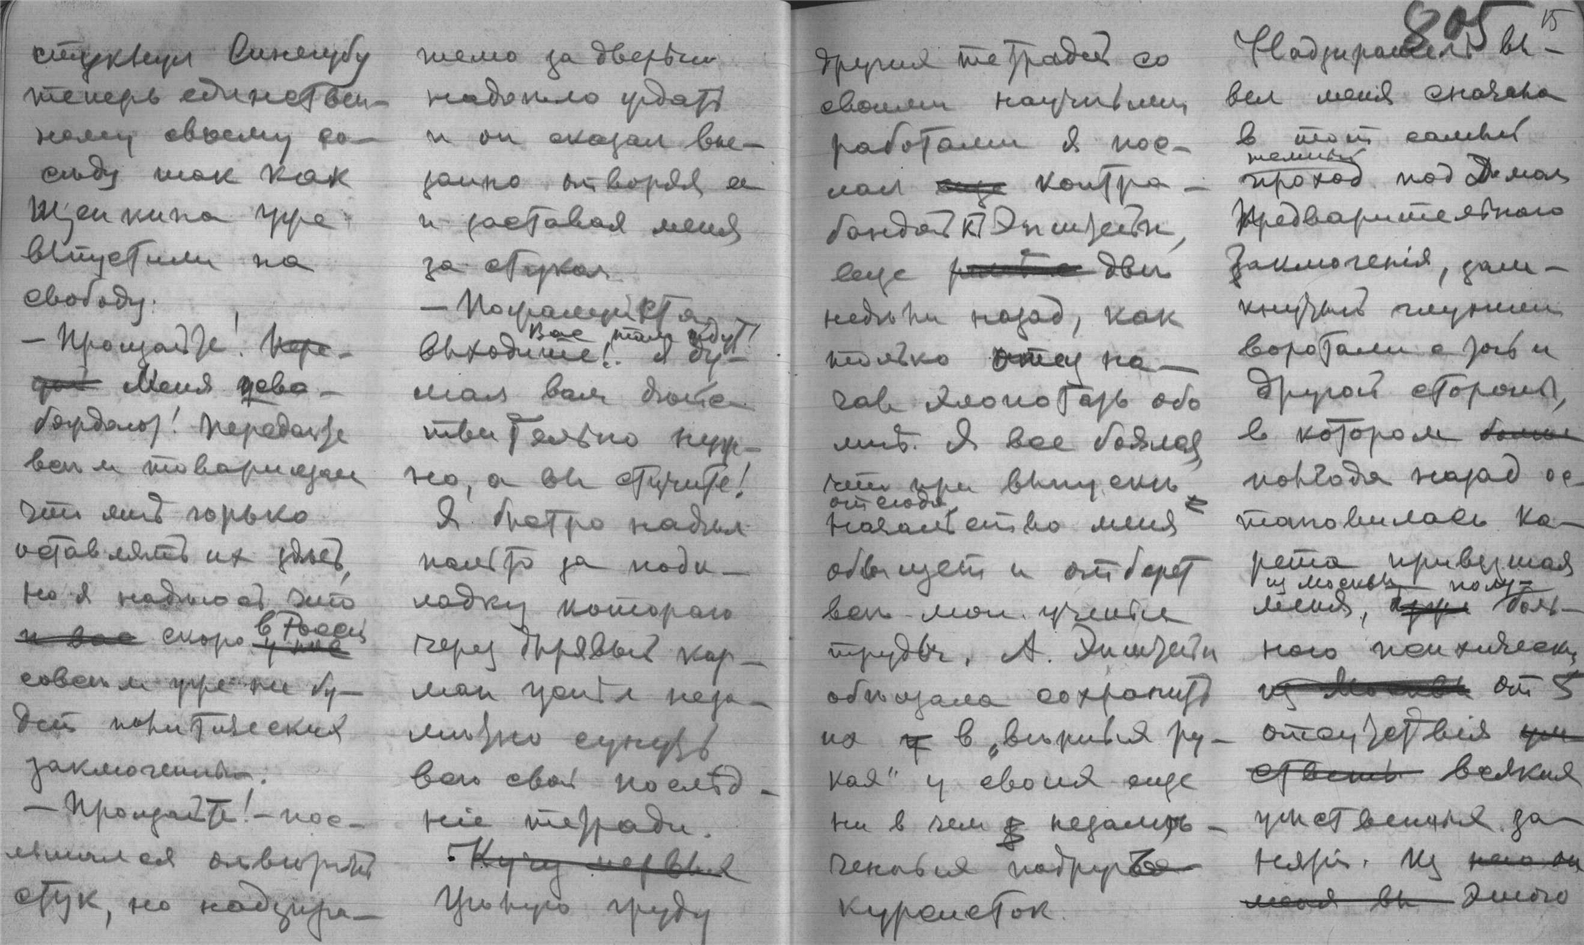 стукнул Синегубу
теперь единствен-
ному своему со-
сѣду так как
Щепкина уже
выпустили на
свободу.
— Прощайте!
Меня осво-
бождают! Передайте
всѣм товарищам
что мнѣ горько
оставлять их здѣсь,
но я надѣюсь что
и вас скоро у нас в Россіи
совсѣм уже не бу-
дет политических
заключенных.
— Прощайте! — пос-
лышался отвѣтный
стук, но надзира-
тело за дверьми
надоѣло ждать
и он сказал вне-
запно отворяя ее
и заставая меня
за стуком
— Пожалуйста
выходите! Вас там ждут! Я ду-
мал вам дѣйс
твительно нуж-
но, а вы стучите!
Я быстро надѣл
пальто за подк-
ладку котораго
через дырявый кар-
ман успѣл неза-
мѣтно сунуть
всѣ свои послѣд-
ніе тетради.
Кучу первыя
Цѣлую груду
других тетрадей со
своими научными
работами я пос-
лал еще контра-
бандой к Эпштейн,
еще двѣ
недѣли назад, как
только отец на-
чал хлопотать обо
мнѣ. Я все боялся,
что при выпускѣ отсюда
начальство меня
обыщет и отберет
всѣ мои ученые
труды. А. Эпштейн
обѣщала сохранить
их в „вѣрныя ру-
ках" у своих еще
ни в чем не замѣ-
ченных подруг
курсисток.
805 15
Надзиратель вы-
вел меня сначала
в тот самый
темный проход под Домом
Предварительнаго
заключенія, зам-
кнутый глухими
воротами с той и
другой стороны,
в котором
полгода назад ос-
тановилась ка-
рета привезшая
меня, из Москвы полу- боль-
ного психически
из Москвы от
отсутствія
всяких
умственных за-
нятій. Из
этого